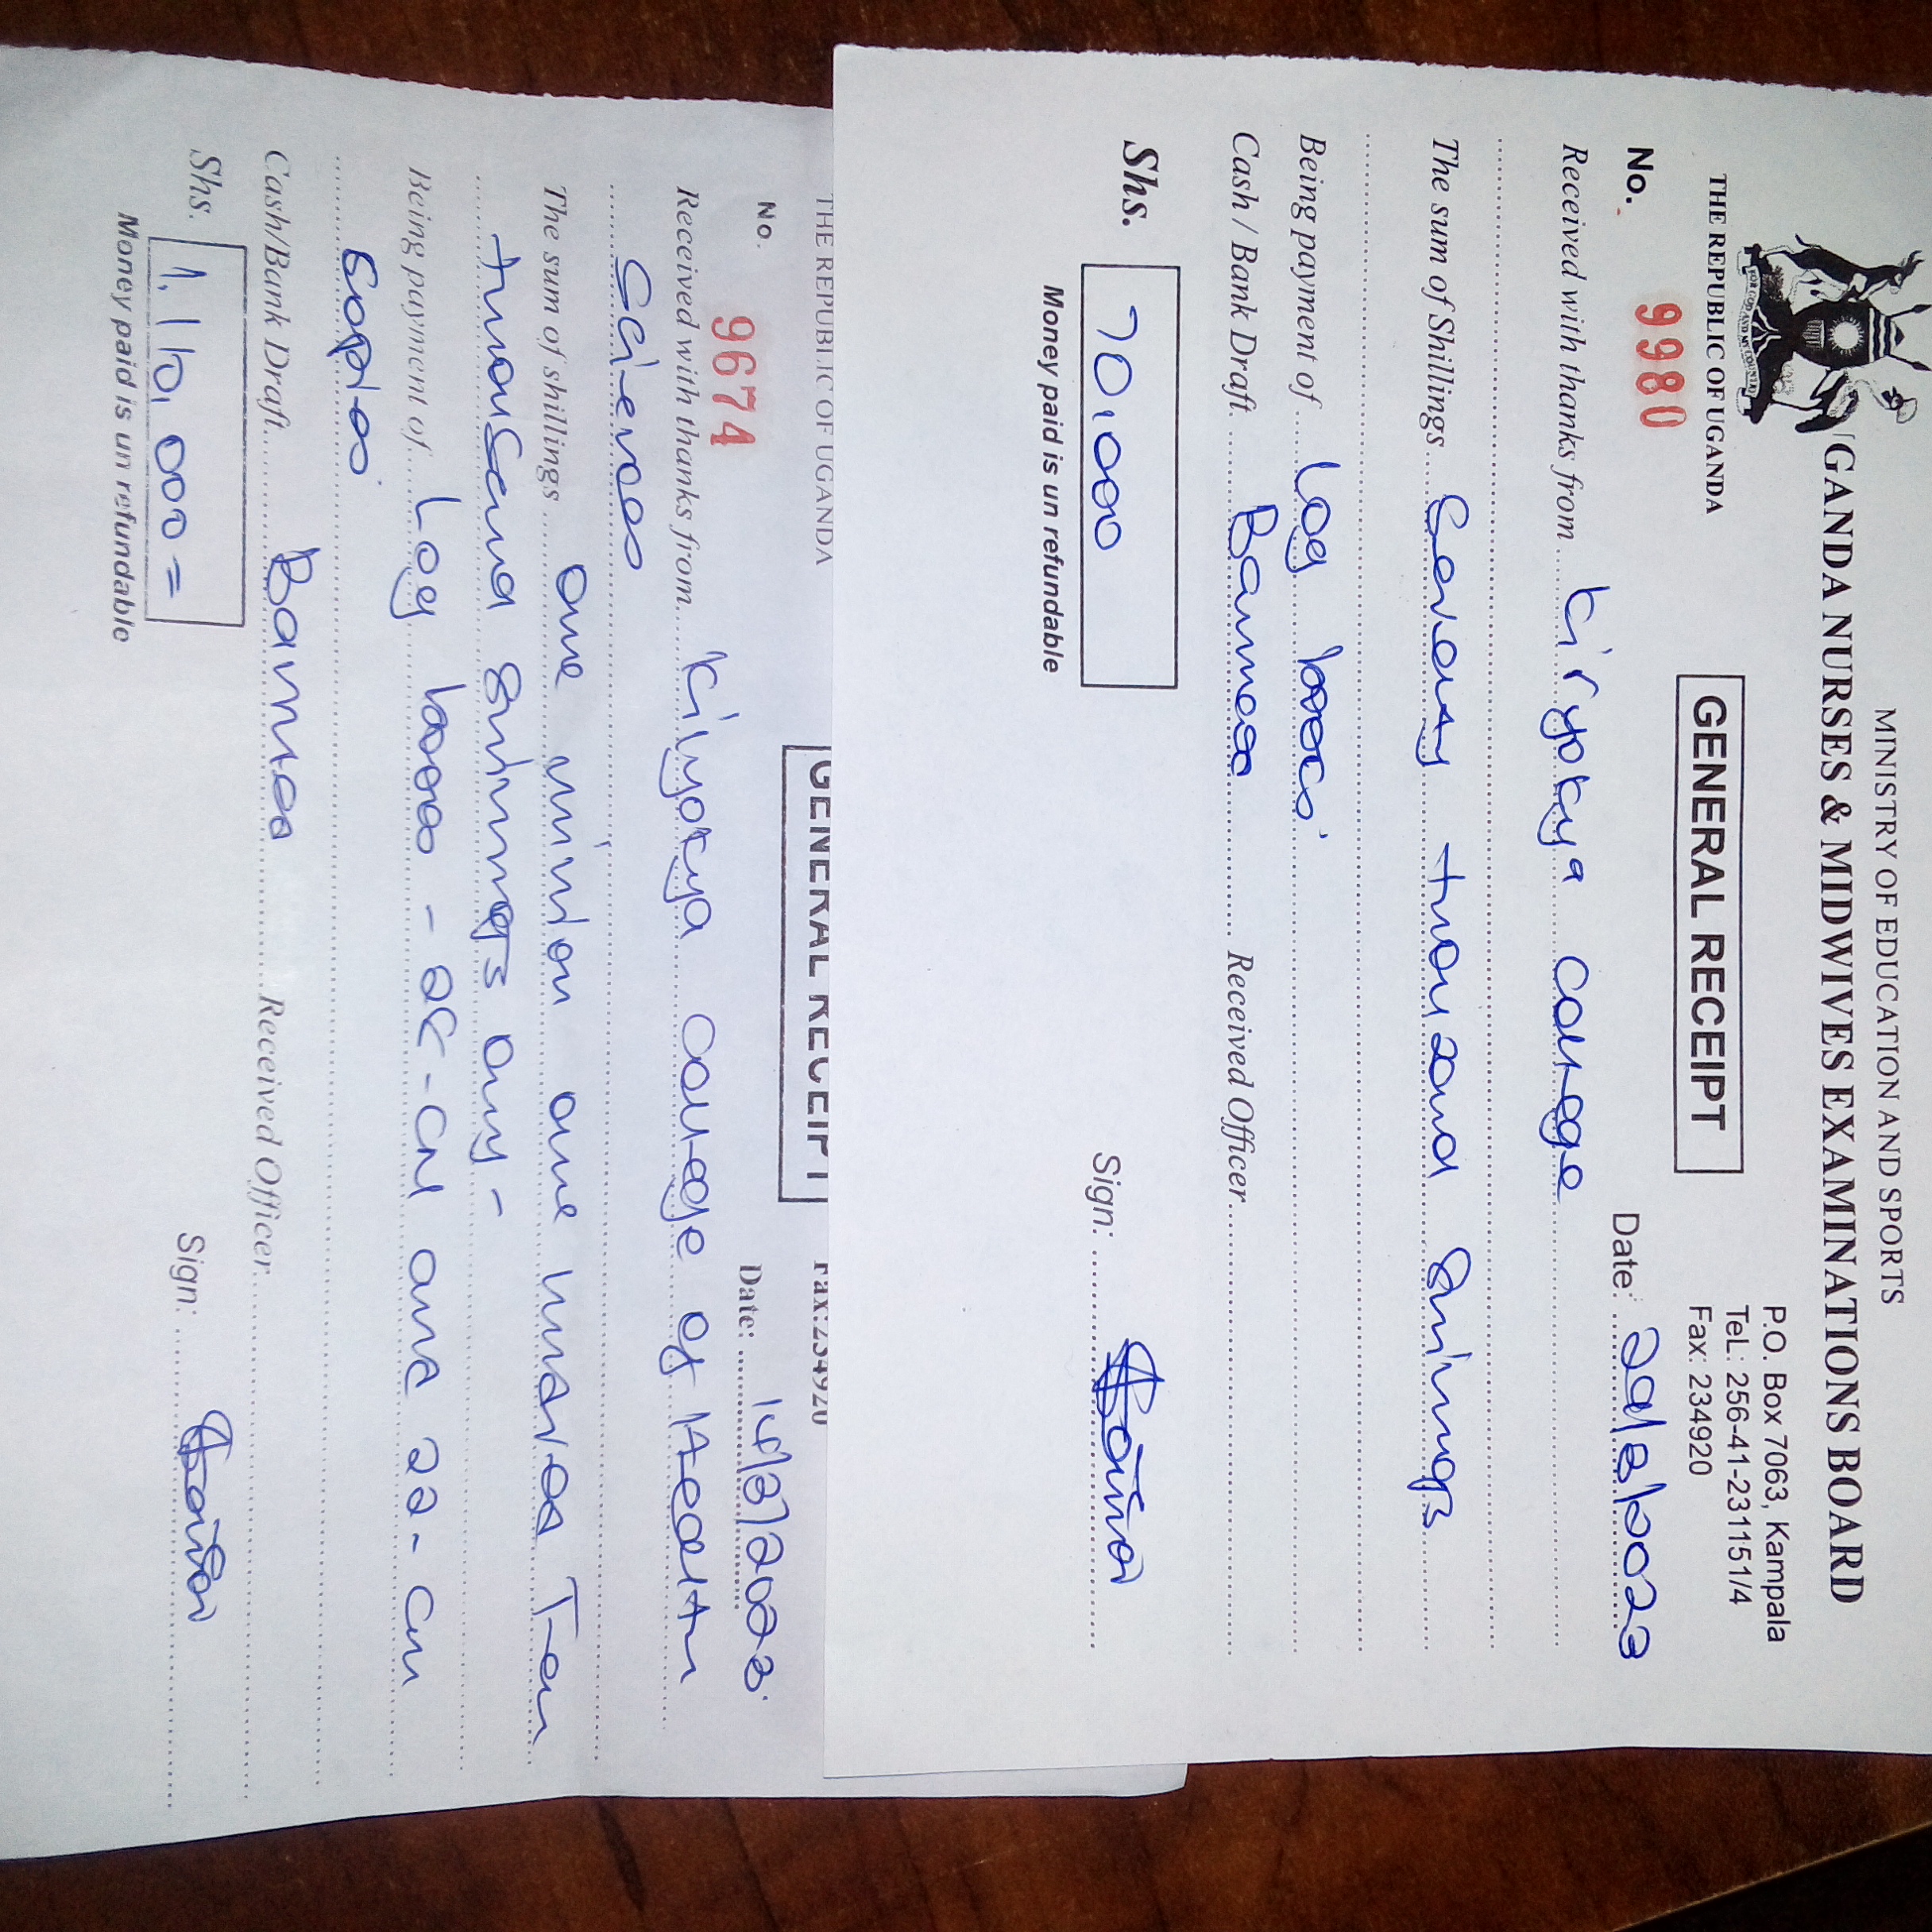 MINISTRY OF EDUCATION AND SPORTS
GANDA NURSES & MIDWIVES EXAMINATIONS BOARD
THE REPUBLIC OF UGANDA
FOR GOD AND MY COUNTRY
P.O. Box 7063, Kampala
Tel.: 256-41-231151/4
Fax: 234920
GENERAL RECEIPT
No. 9980
Date: 29/8/2023
Received with thanks from Kiryokya College
The sum of Shillings Seventy thousand Shillings
Being payment of Log books
Cash / Bank Draft Banked Received Officer
Shs. 70,000
Sign:
Money paid is un refundable
THE REPUBLIC OF UGANDA
Fax: 234920
GENERAL RECEIPT
No. 9674
Date: 14/8/2023
Received with thanks from Kilyokya College of Health
Sciences
The sum of shillings One million one hundred Ten
thousand shillings only -
Being payment of Log books - 88 - CN and 22 - CM
Copies
Cash/Bank Draft Banked Received Officer
Shs. 1,110,000=
Sign:
Money paid is un refundable